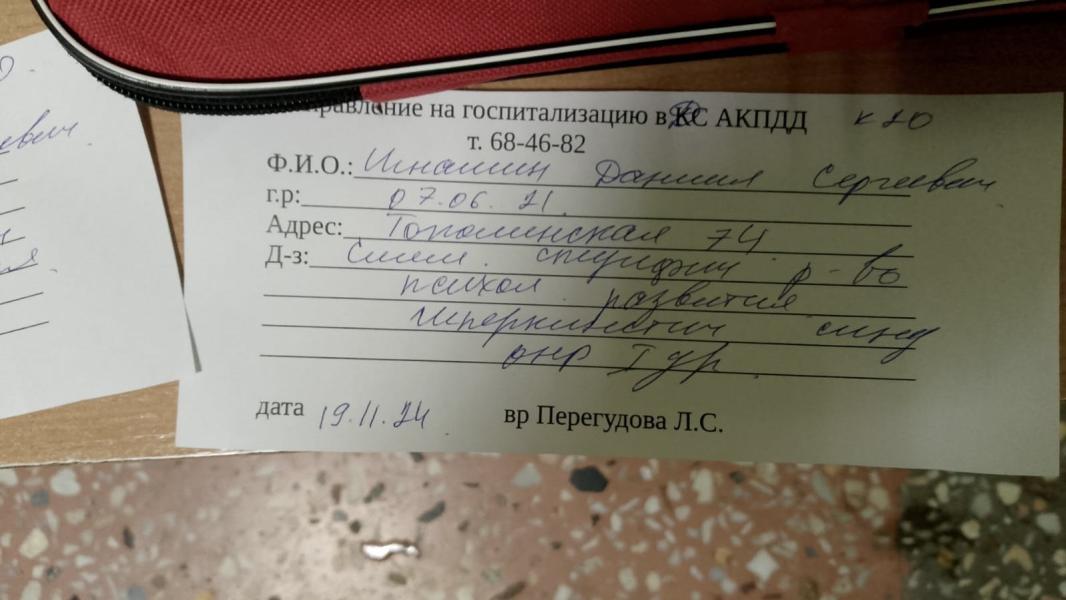 равление на госпитализацию в ДС АКПДД КДО
т. 68-46-82
Ф.И.О.: Даниил Сергеевич
г.р: 07.06.21.
Адрес: Тополинская 74
Д-з: Смеш. специфич р-во
психол. развития
гиперкинетич синд
онр I ур.
дата 19.11.24
вр Перегудова Л.С.
евич